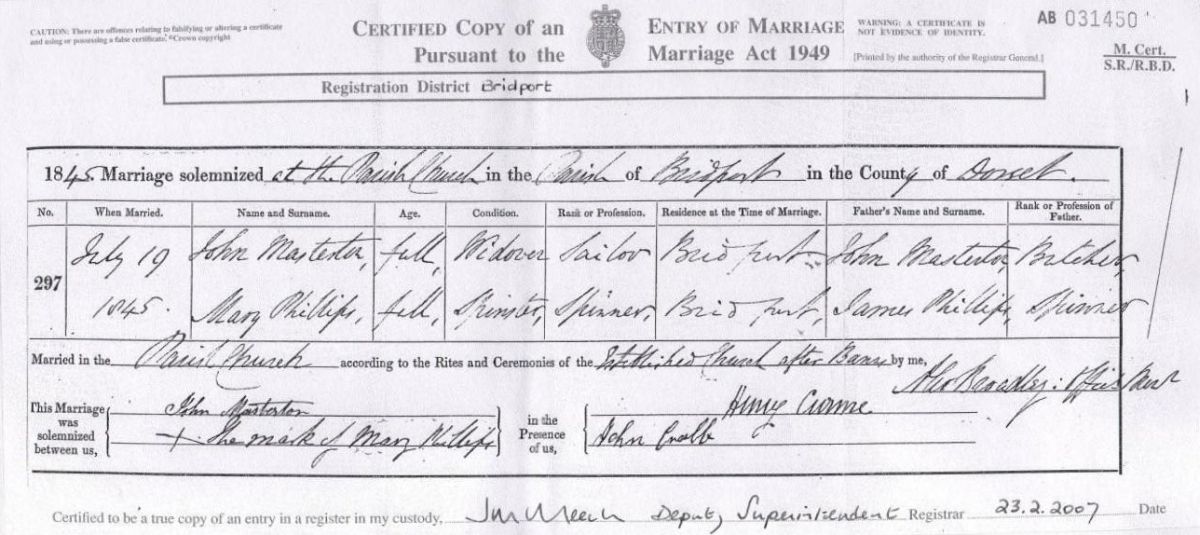 CAUTION: There are offences relating to falsifying or altering a certificate
and using or possessing a false certificate. ©Crown copyright
CERTIFIED COPY OF AN ENTRY OF MARRIAGE
Pursuant to the Marriage Act 1949
WARNING: A CERTIFICATE IS
NOT EVIDENCE OF IDENTITY.
[Printed by the authority of the Registrar General.]
AB 031450
M. Cert.
S.R./R.B.D.
Registration District Bridport
1845 Marriage solemnized at the Parish Church in the Parish of Bridport in the County of Dorset.
No. When Married. Name and Surname. Age. Condition. Rank or Profession. Residence at the Time of Marriage. Father's Name and Surname. Rank or Profession of Father.
297 July 19 John Masterton, full, Widower Sailor Bridport John Masterton, Butcher,
1845. Mary Phillips, full, Spinster, Spinner, Bridport, James Phillips, Spinner
Married in the Parish Church according to the Rites and Ceremonies of the Established Church after Banns by me,
This Marriage was solemnized between us,
John Masterton
+ The mark of Mary Phillips
in the Presence of us,
Henry
John
Certified to be a true copy of an entry in a register in my custody, Deputy Superintendent Registrar 23.2.2007 Date